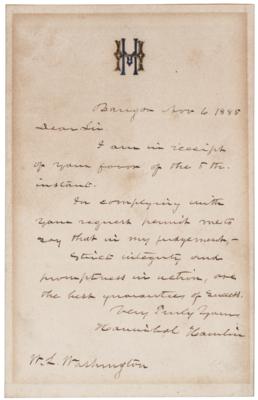 H
Bangor Nov 6, 1888
Dear Sir
I am in receipt
of your favor of the 5th
instant.
In complying with
your request permit me to
say that in my judgement
strict integrity and
promptness in action, are
the best guaranties of success.
Very Truly Yours
Hannibal Hamlin
W. L. Washington